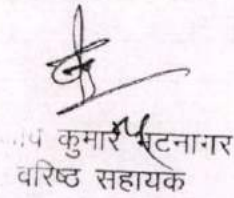 कुमार भटनागर
वरिष्ठ सहायक